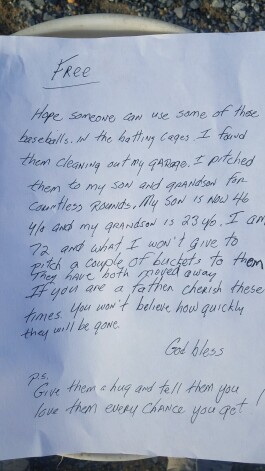 FREE
Hope someone can use some of these
baseballs. in the batting cages. I found
them cleaning out my garage. I pitched
them to my son and grandson for
countless rounds. My son is now 46
y/o and my grandson is 23 y/o. I am
72 and what I won't give to
pitch a couple of buckets to them
They have both moved away
If you are a father cherish these
times. You won't believe how quickly
they will be gone
God bless
p.s.
Give them a hug and tell them you
love them every chance you get !